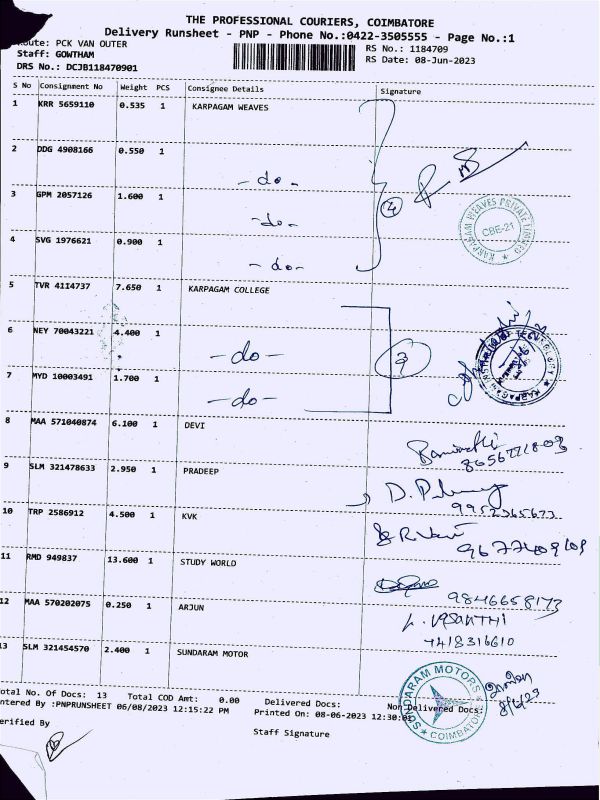 THE PROFESSIONAL COURIERS, COIMBATORE
Delivery Runsheet - PNP - Phone No.:0422-3505555 - Page No.:1
Route: PCK VAN OUTER
RS No.: 1184709
Staff: GOWTHAM
RS Date: 08-Jun-2023
DRS No.: DCJB118470901
S No Consignment No Weight PCS Consignee Details Signature
1 KRR 5659110 0.535 1 KARPAGAM WEAVES
2 DDG 4908166 0.550 1 -do-
3 GPM 2057126 1.600 1 -do-
4 SVG 1976621 0.900 1 -do-
KARPAGAM WEAVES PRIVATE LIMITED
CBE-21
5 TVR 4114737 7.650 1 KARPAGAM COLLEGE
6 NEY 70043221 4.400 1 -do-
7 MYD 10003491 1.700 1 -do-
8 MAA 571040874 6.100 1 DEVI
9 SLM 321478633 2.950 1 PRADEEP
10 TRP 2586912 4.500 1 KVK
11 RMD 949837 13.600 1 STUDY WORLD
9846658173
12 MAA 570202075 0.250 1 ARJUN
VASANTHI
7418316610
13 SLM 321454570 2.400 1 SUNDARAM MOTOR
SUNDARAM MOTORS
COIMBATORE
8/6/23
Total No. Of Docs: 13 Total COD Amt: 0.00 Delivered Docs: Non Delivered Docs:
ntered By :PNPRUNSHEET 06/08/2023 12:15:22 PM Printed On: 08-06-2023 12:30:03
erified By
Staff Signature